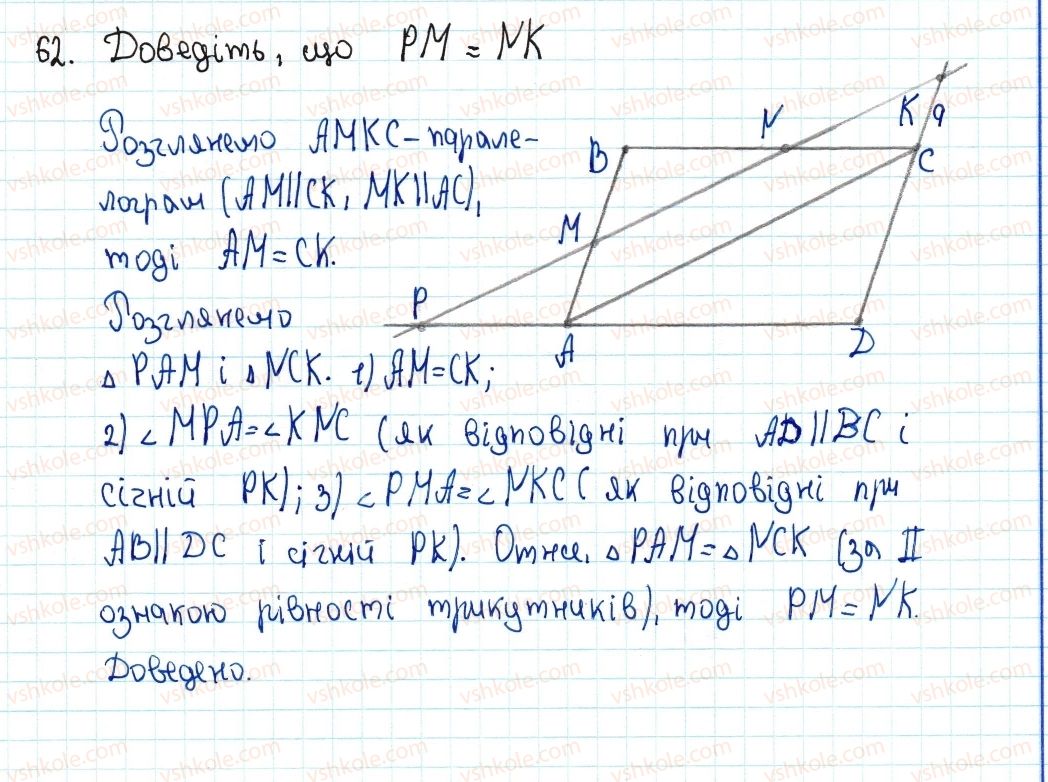 62. Доведіть, що PM = NK
Розглянемо AMKC – парале-
лограм (AM||CK, MK||AC),
тоді AM = CK.
Розглянемо
△ PAM і △ NCK. 1) AM = CK;
2) ∠ MPA = ∠ KNC (як відповідні при AD||BC і
січній PK); 3) ∠ PMA = ∠ NKC (як відповідні при
AB||DC і січній PK). Отже, △ PAM = △ NCK (за II
ознакою рівності трикутників), тоді PM = NK.
Доведено.
K a
N
B
C
M
P
A
D
vshkole.com